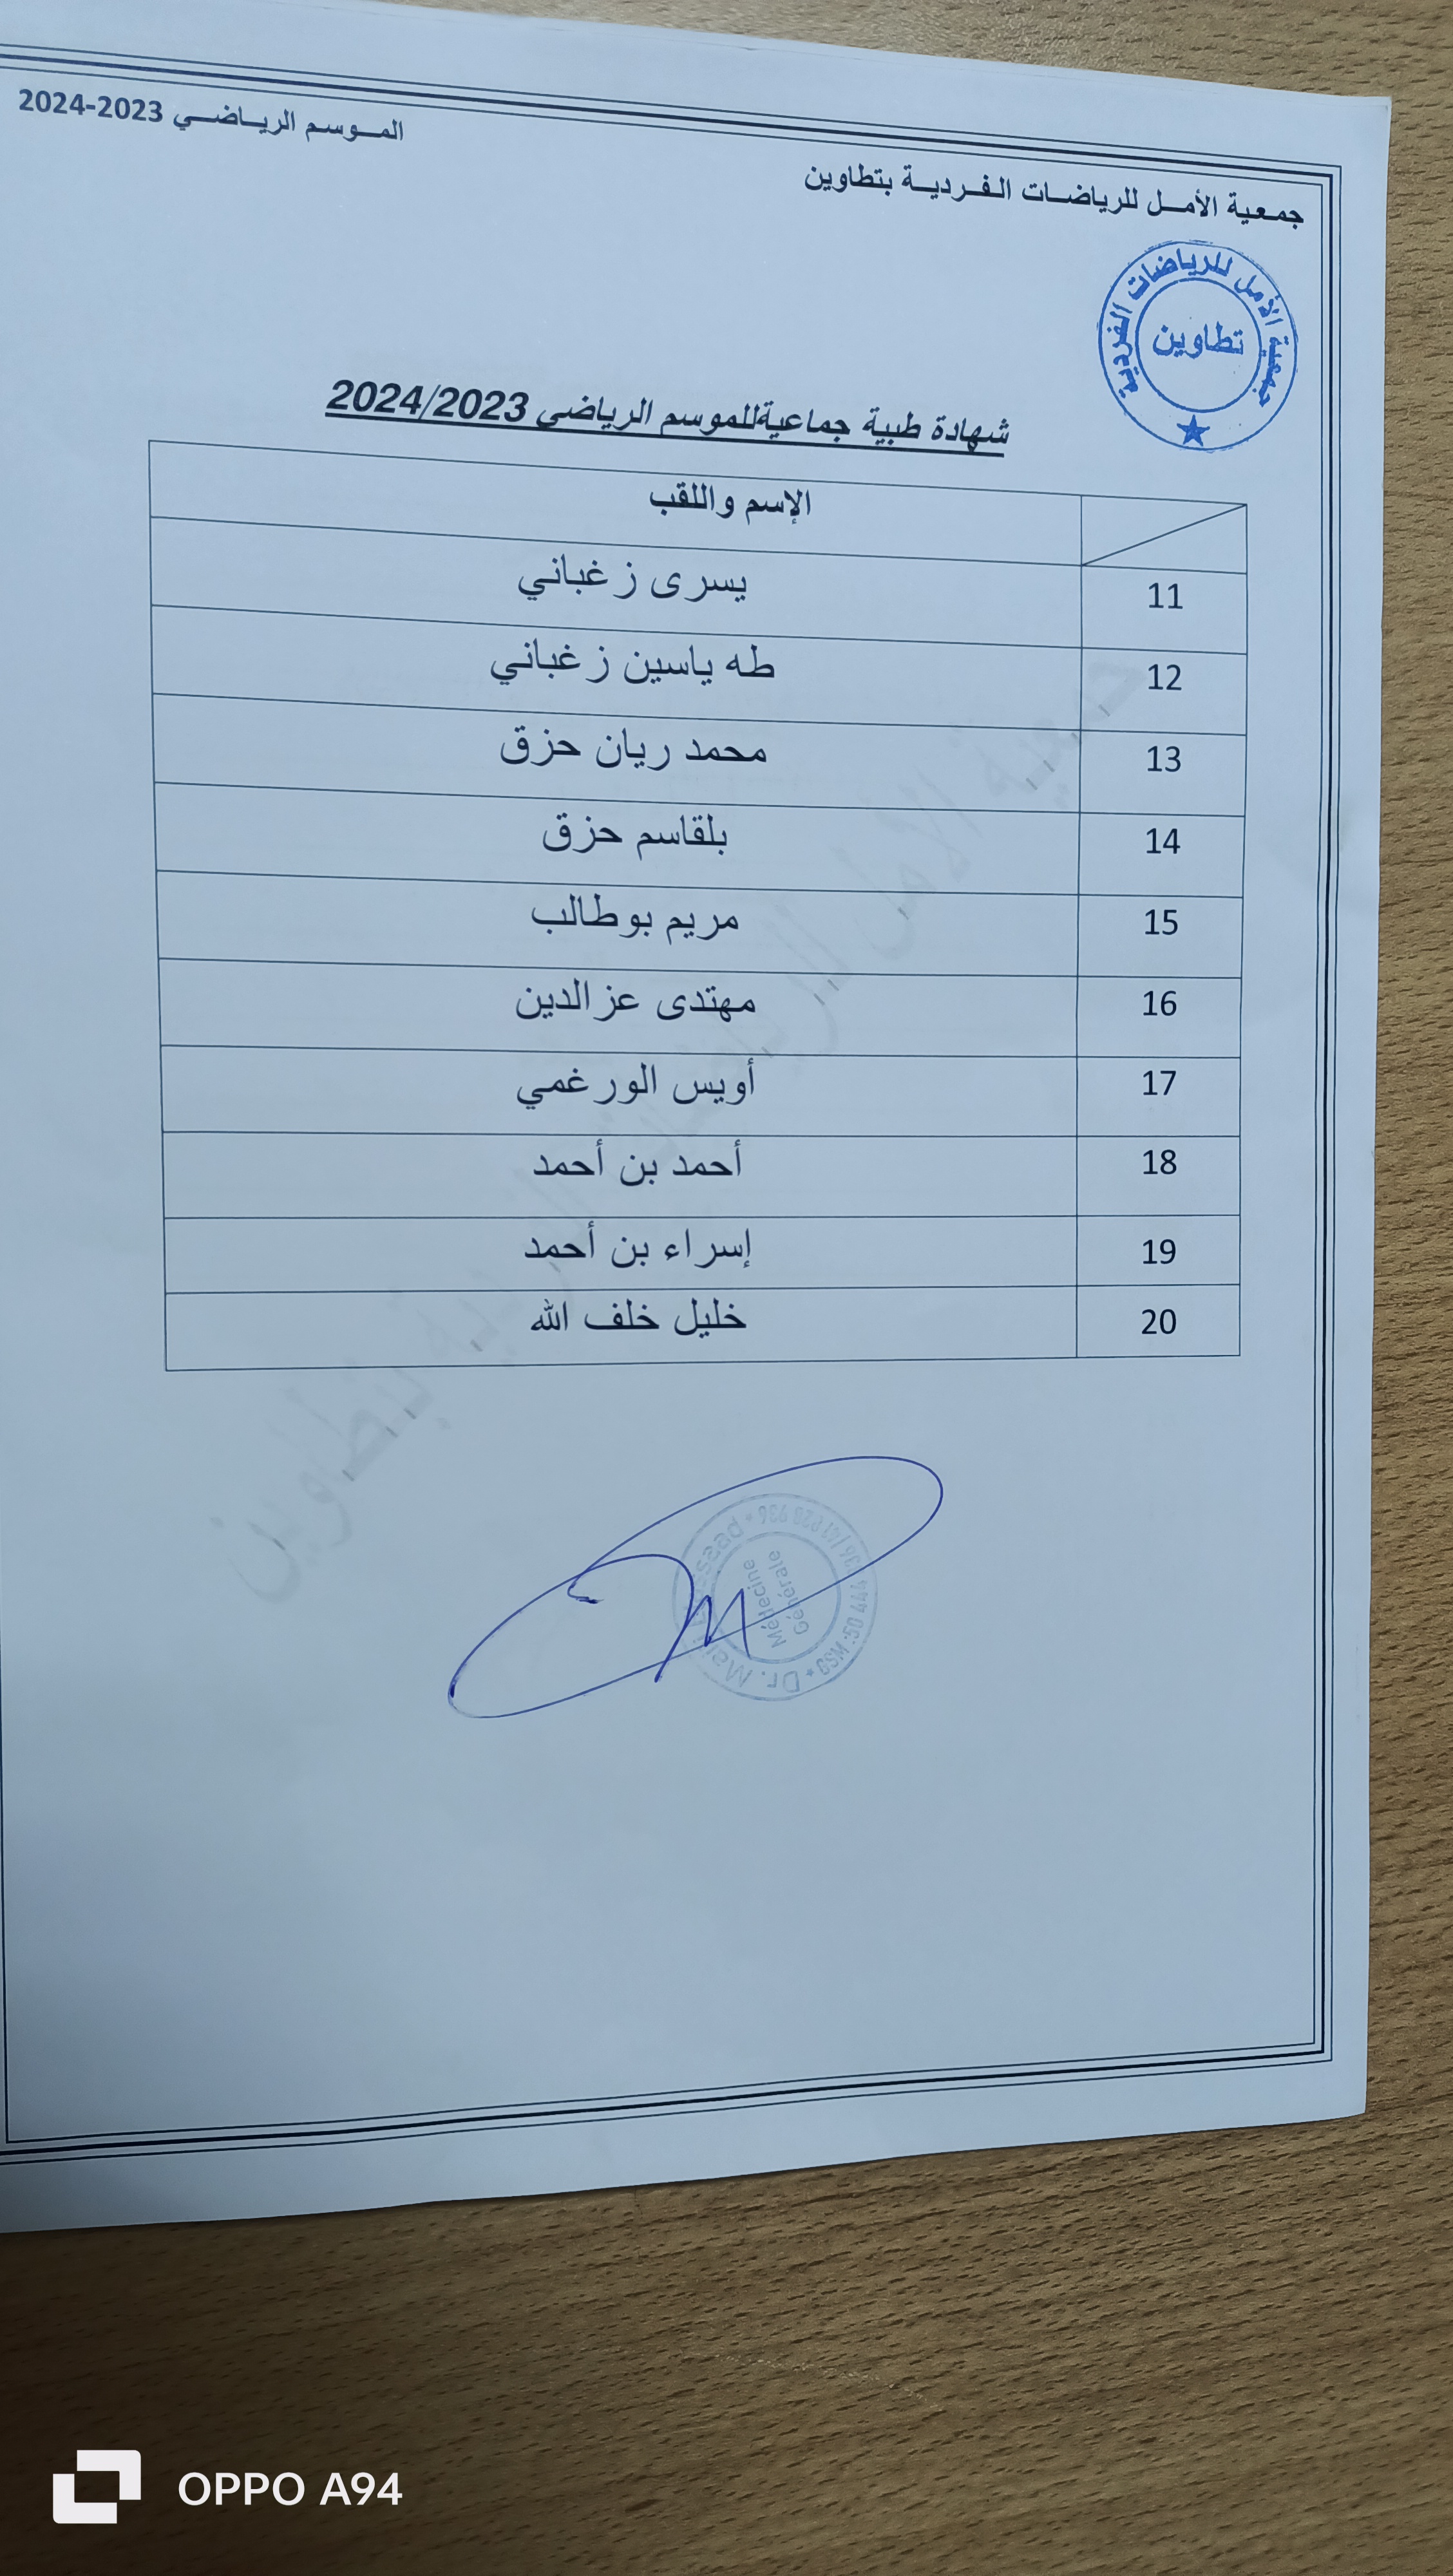 الموسم الرياضي 2023-2024
جمعية الأمل للرياضات الفردية بتطاوين
جمعية الأمل للرياضات الفردية
تطاوين
شهادة طبية جماعيةللموسم الرياضي 2024/2023
الإسم واللقب
11 يسرى زغباني
12 طه ياسين زغباني
13 محمد ريان حزق
14 بلقاسم حزق
15 مريم بوطالب
16 مهتدى عزالدين
17 أويس الورغمي
18 أحمد بن أحمد
19 إسراء بن أحمد
20 خليل خلف الله
جمعية الأمل للرياضات الفردية بتطاوين
Médecine
Générale
Dr.
GSM:
OPPO A94